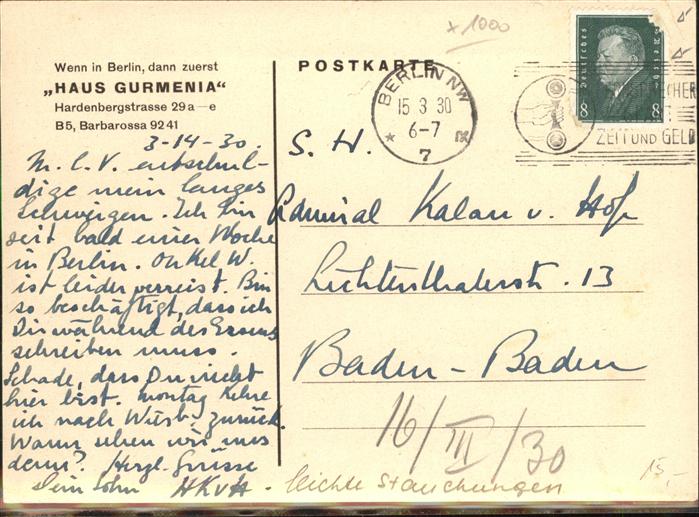 x 1000
Wenn in Berlin, dann zuerst
„HAUS GURMENIA“
Hardenbergstrasse 29 a—e
B5, Barbarossa 92 41
POSTKARTE
BERLIN NW
15 3 30
6-7
* IX
7
Deutsches Reich
8 8
ZEIT UND GELD
3-14-30.
M. l. V. entschul-
dige mein langes
Schweigen. Ich bin
seit bald einer Woche
in Berlin. Onkel W.
ist leider verreist. Bin
so beschäftigt, dass ich
Dir während des Essens
schreiben muss.
Schade, dass Du nicht
hier bist. Montag kehre
ich nach Würb. zurück.
Wann sehen wir uns
denn? Herzl. Grüsse
Dein Sohn HKvH.
S. H.
Admiral Kalau v. Hofe
Lichtenthalerstr. 13
Baden-Baden
16/III/30
leichte Stauchungen
15,-